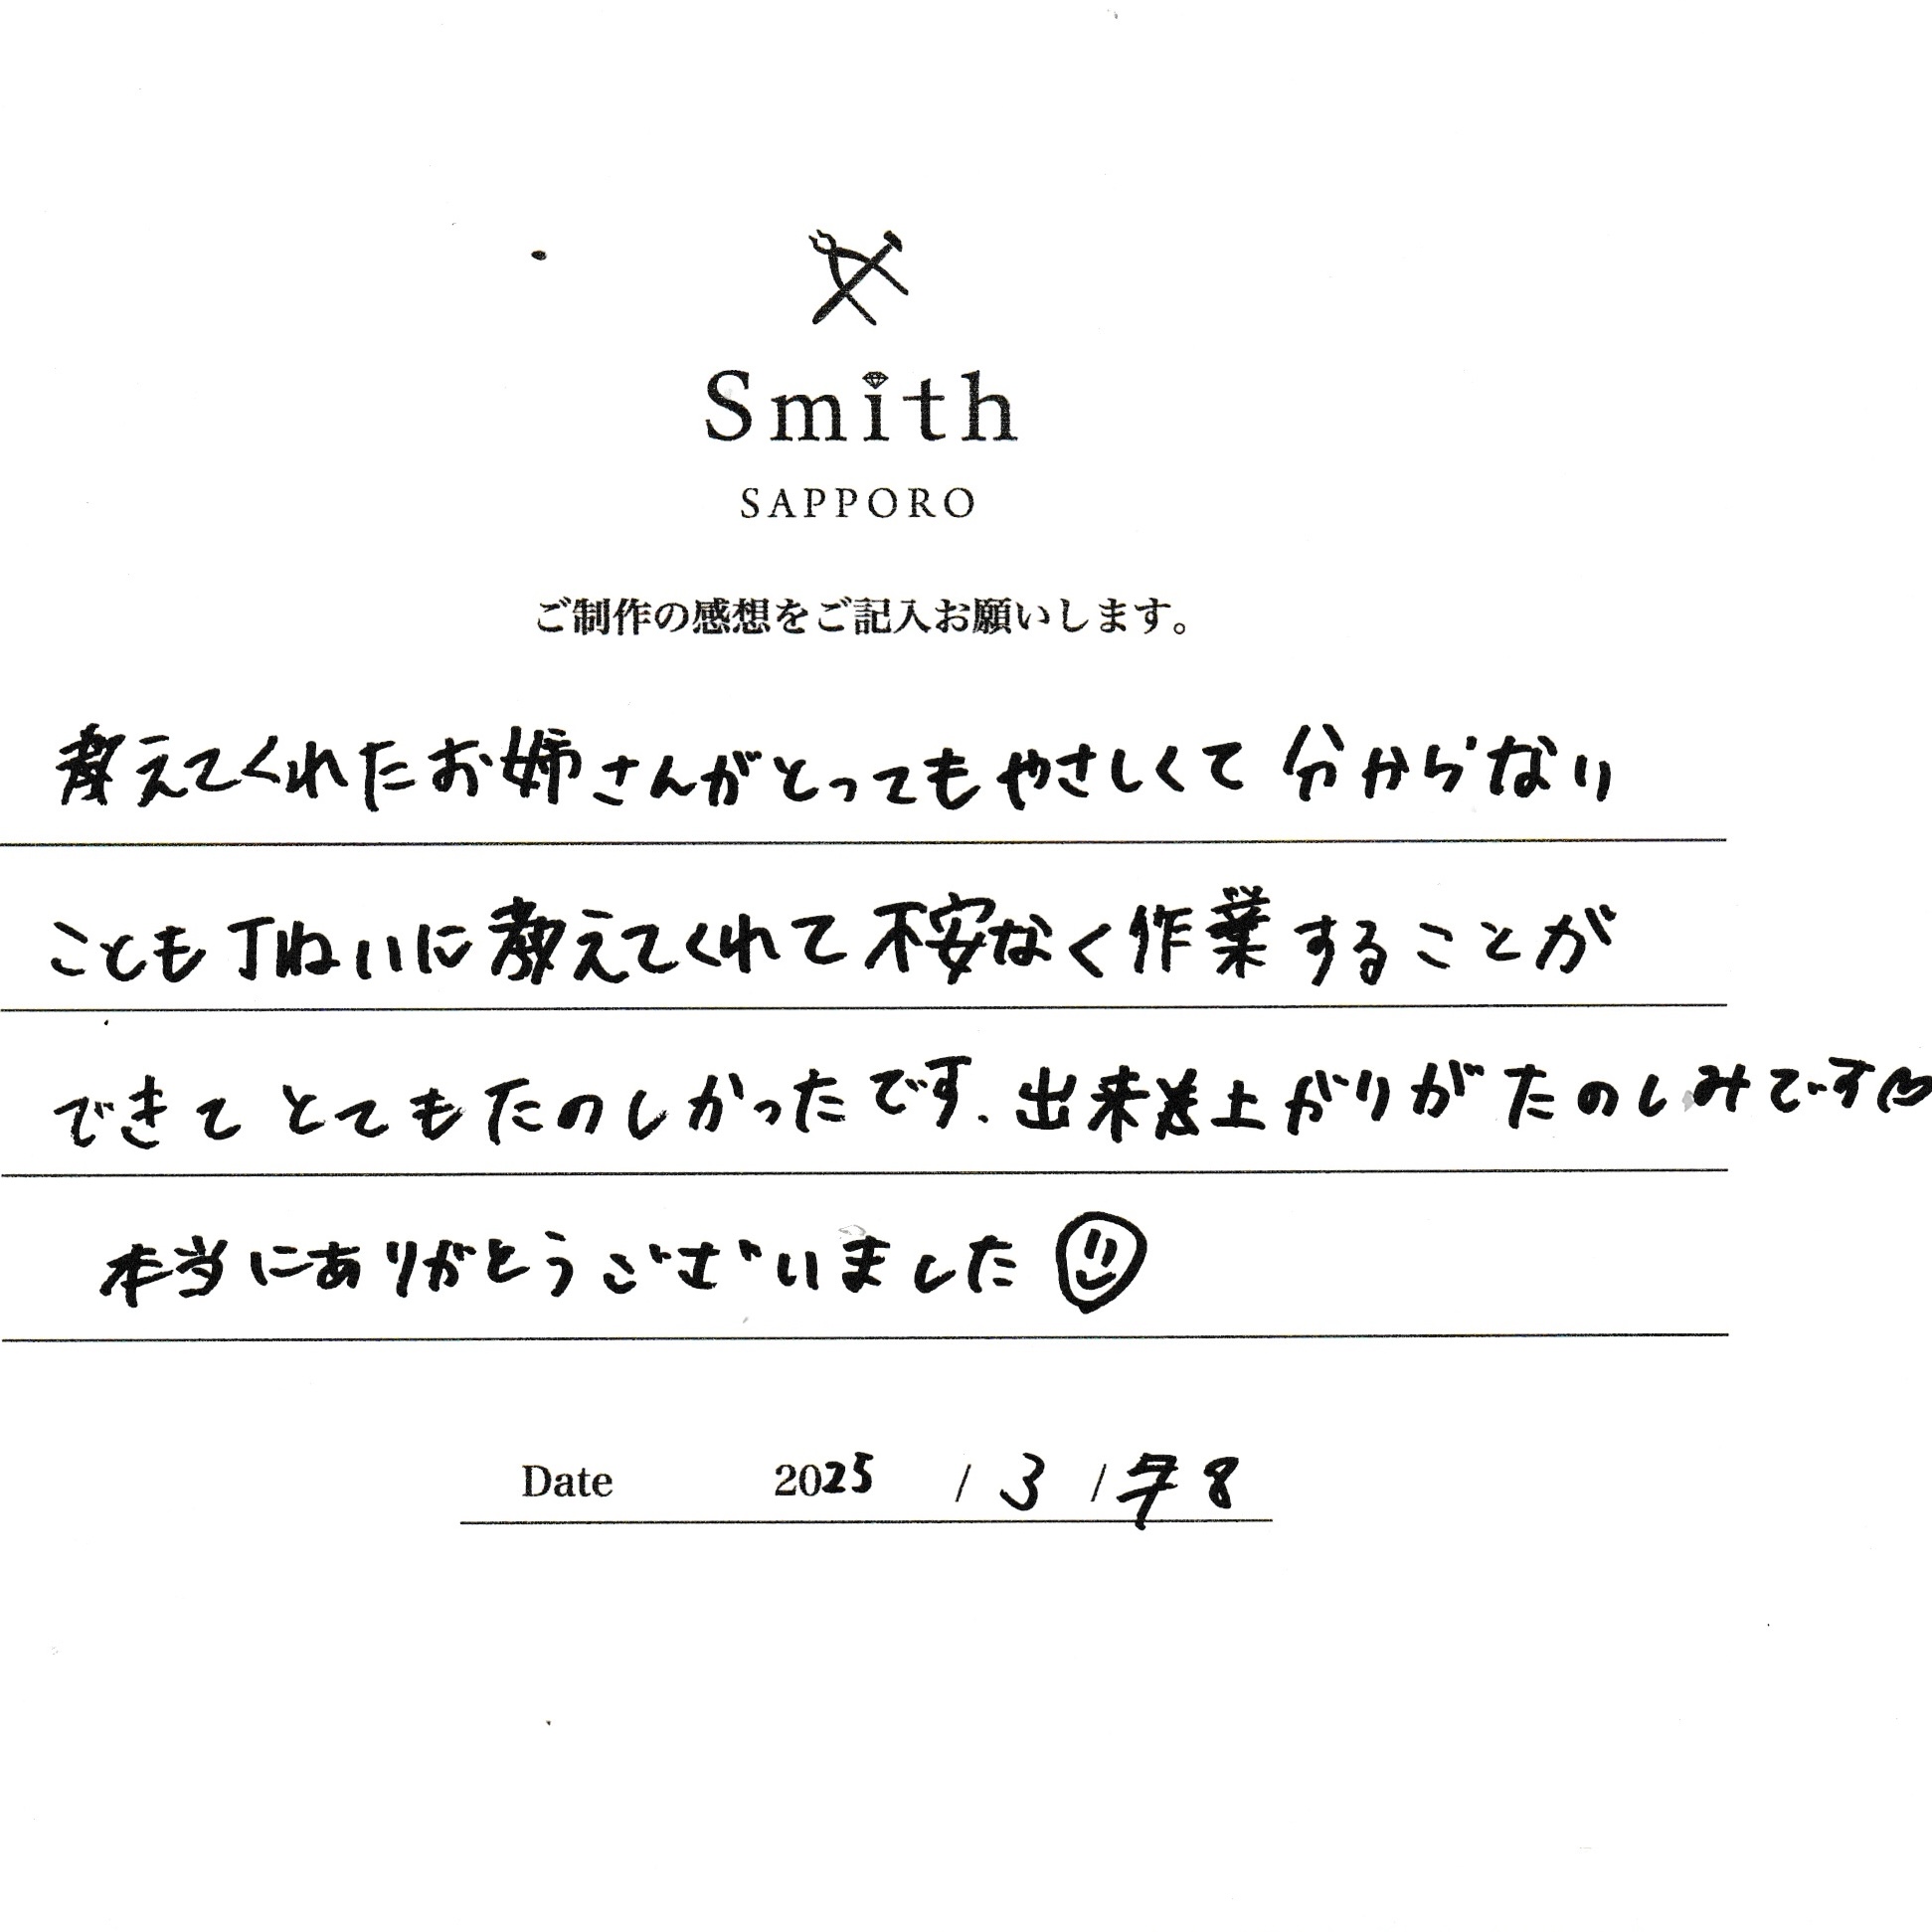 Smith
SAPPORO
ご制作の感想をご記入お願いします。
教えてくれたお姉さんがとってもやさしくて分からない
ことも丁ねいに教えてくれて不安なく作業することが
できてとてもたのしかったです.出来上がりがたのしみです
本当にありがとうございました
Date 2025 / 3 / 8